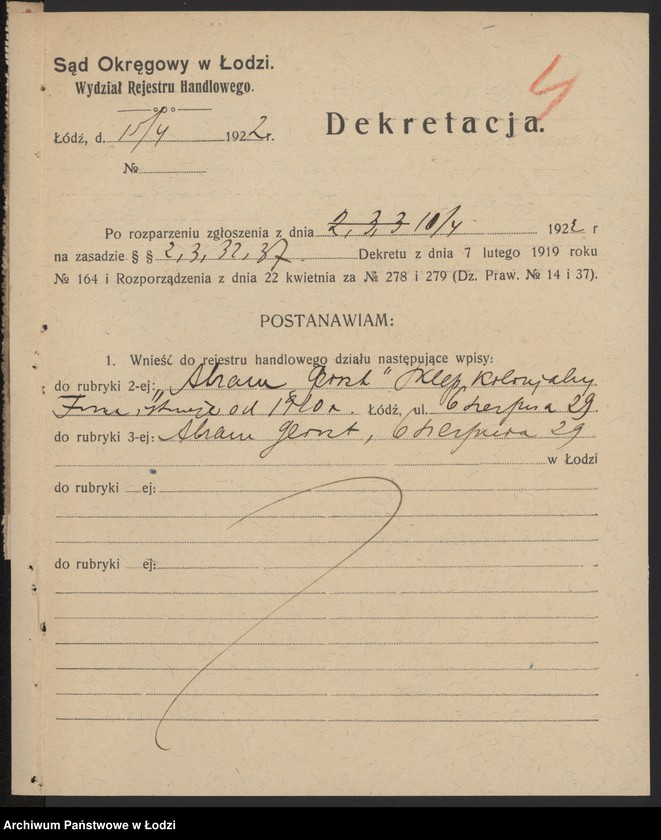 Sąd Okręgowy w Łodzi.
Wydział Rejestru Handlowego.
Dekretacja.
Łódź, d. 15/4 1922 r.
№
Po rozparzeniu zgłoszenia z dnia 2, 3, 3 10/4 1922 r
na zasadzie § § 2, 3, 32, 37. Dekretu z dnia 7 lutego 1919 roku
№ 164 i Rozporządzenia z dnia 22 kwietnia za № 278 i 279 (Dz. Praw. № 14 i 37).
POSTANAWIAM:
1. Wnieść do rejestru handlowego działu następujące wpisy:
do rubryki 2-ej: „Abram " Sklep kolonjalny
od 1910 r. Łódź, ul. 6 sierpnia 29
do rubryki 3-ej: Abram , 6 sierpnia 29
w Łodzi
do rubryki ej:
do rubryki ej:
Archiwum Państwowe w Łodzi